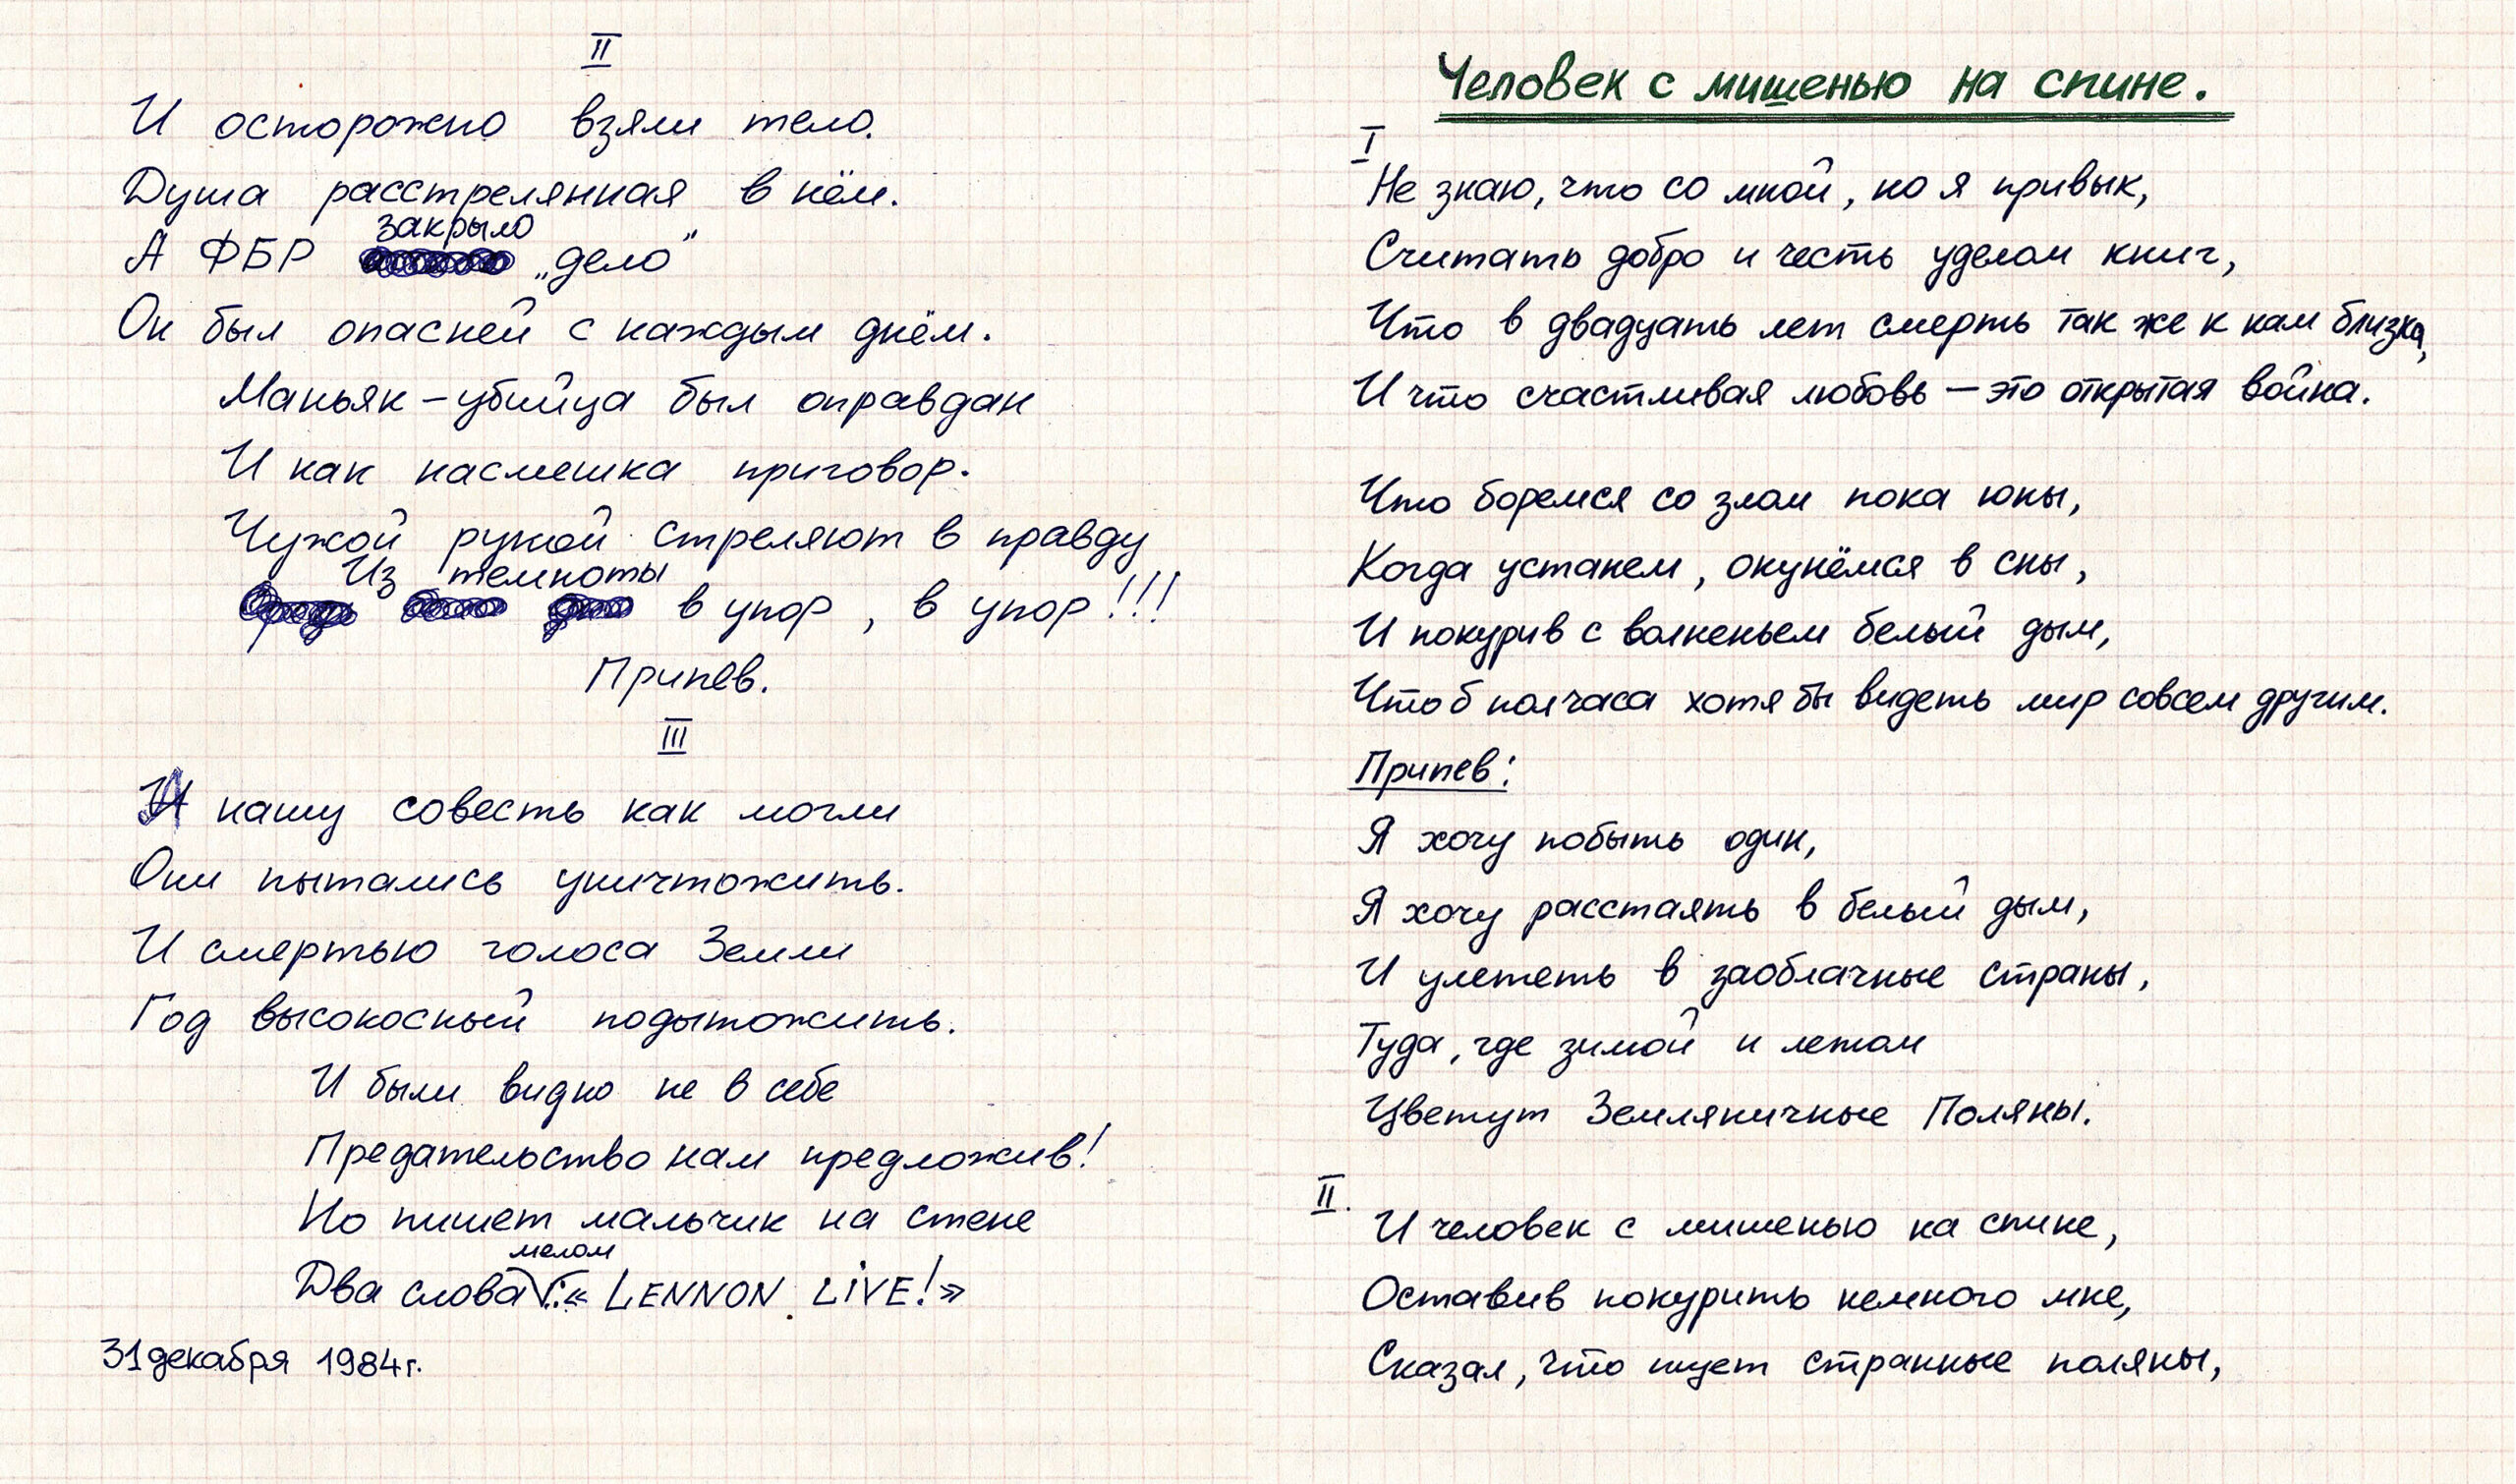 II
И осторожно взяли тело.
Душа расстрелянная в нём.
А ФБР закрыло „дело“
Он был опасней с каждым днём.
Маньяк – убийца был оправдан
И как насмешка приговор.
Чужой рукой стреляют в правду
Из темноты в упор, в упор!!!
Припев.
III
И нашу совесть как могли
Они пытались уничтожить.
И смертью голоса Земли
Год высокосный подытожить.
И были видно не в себе
Предательство нам предложив!
Но пишет мальчик на стене
Два слова мелом: « LENNON LIVE!»
31 декабря 1984г.
Человек с мишенью на спине.
I
Не знаю, что со мной, но я привык,
Считать добро и честь уделом книг,
Что в двадцать лет смерть так же к нам близка,
И что счастливая любовь – это открытая война.
Что боремся со злом пока юны,
Когда устанем, окунёмся в сны,
И покурив с волненьем белый дым,
Чтоб полчаса хотя бы видеть мир совсем другим.
Припев:
Я хочу побыть один,
Я хочу расстаять в белый дым,
И улететь в заоблачные страны,
Туда, где зимой и летом
Цветут Земляничные Поляны.
II.
И человек с мишенью на спине,
Оставив покурить немного мне,
Сказал, что ищет странные поляны,